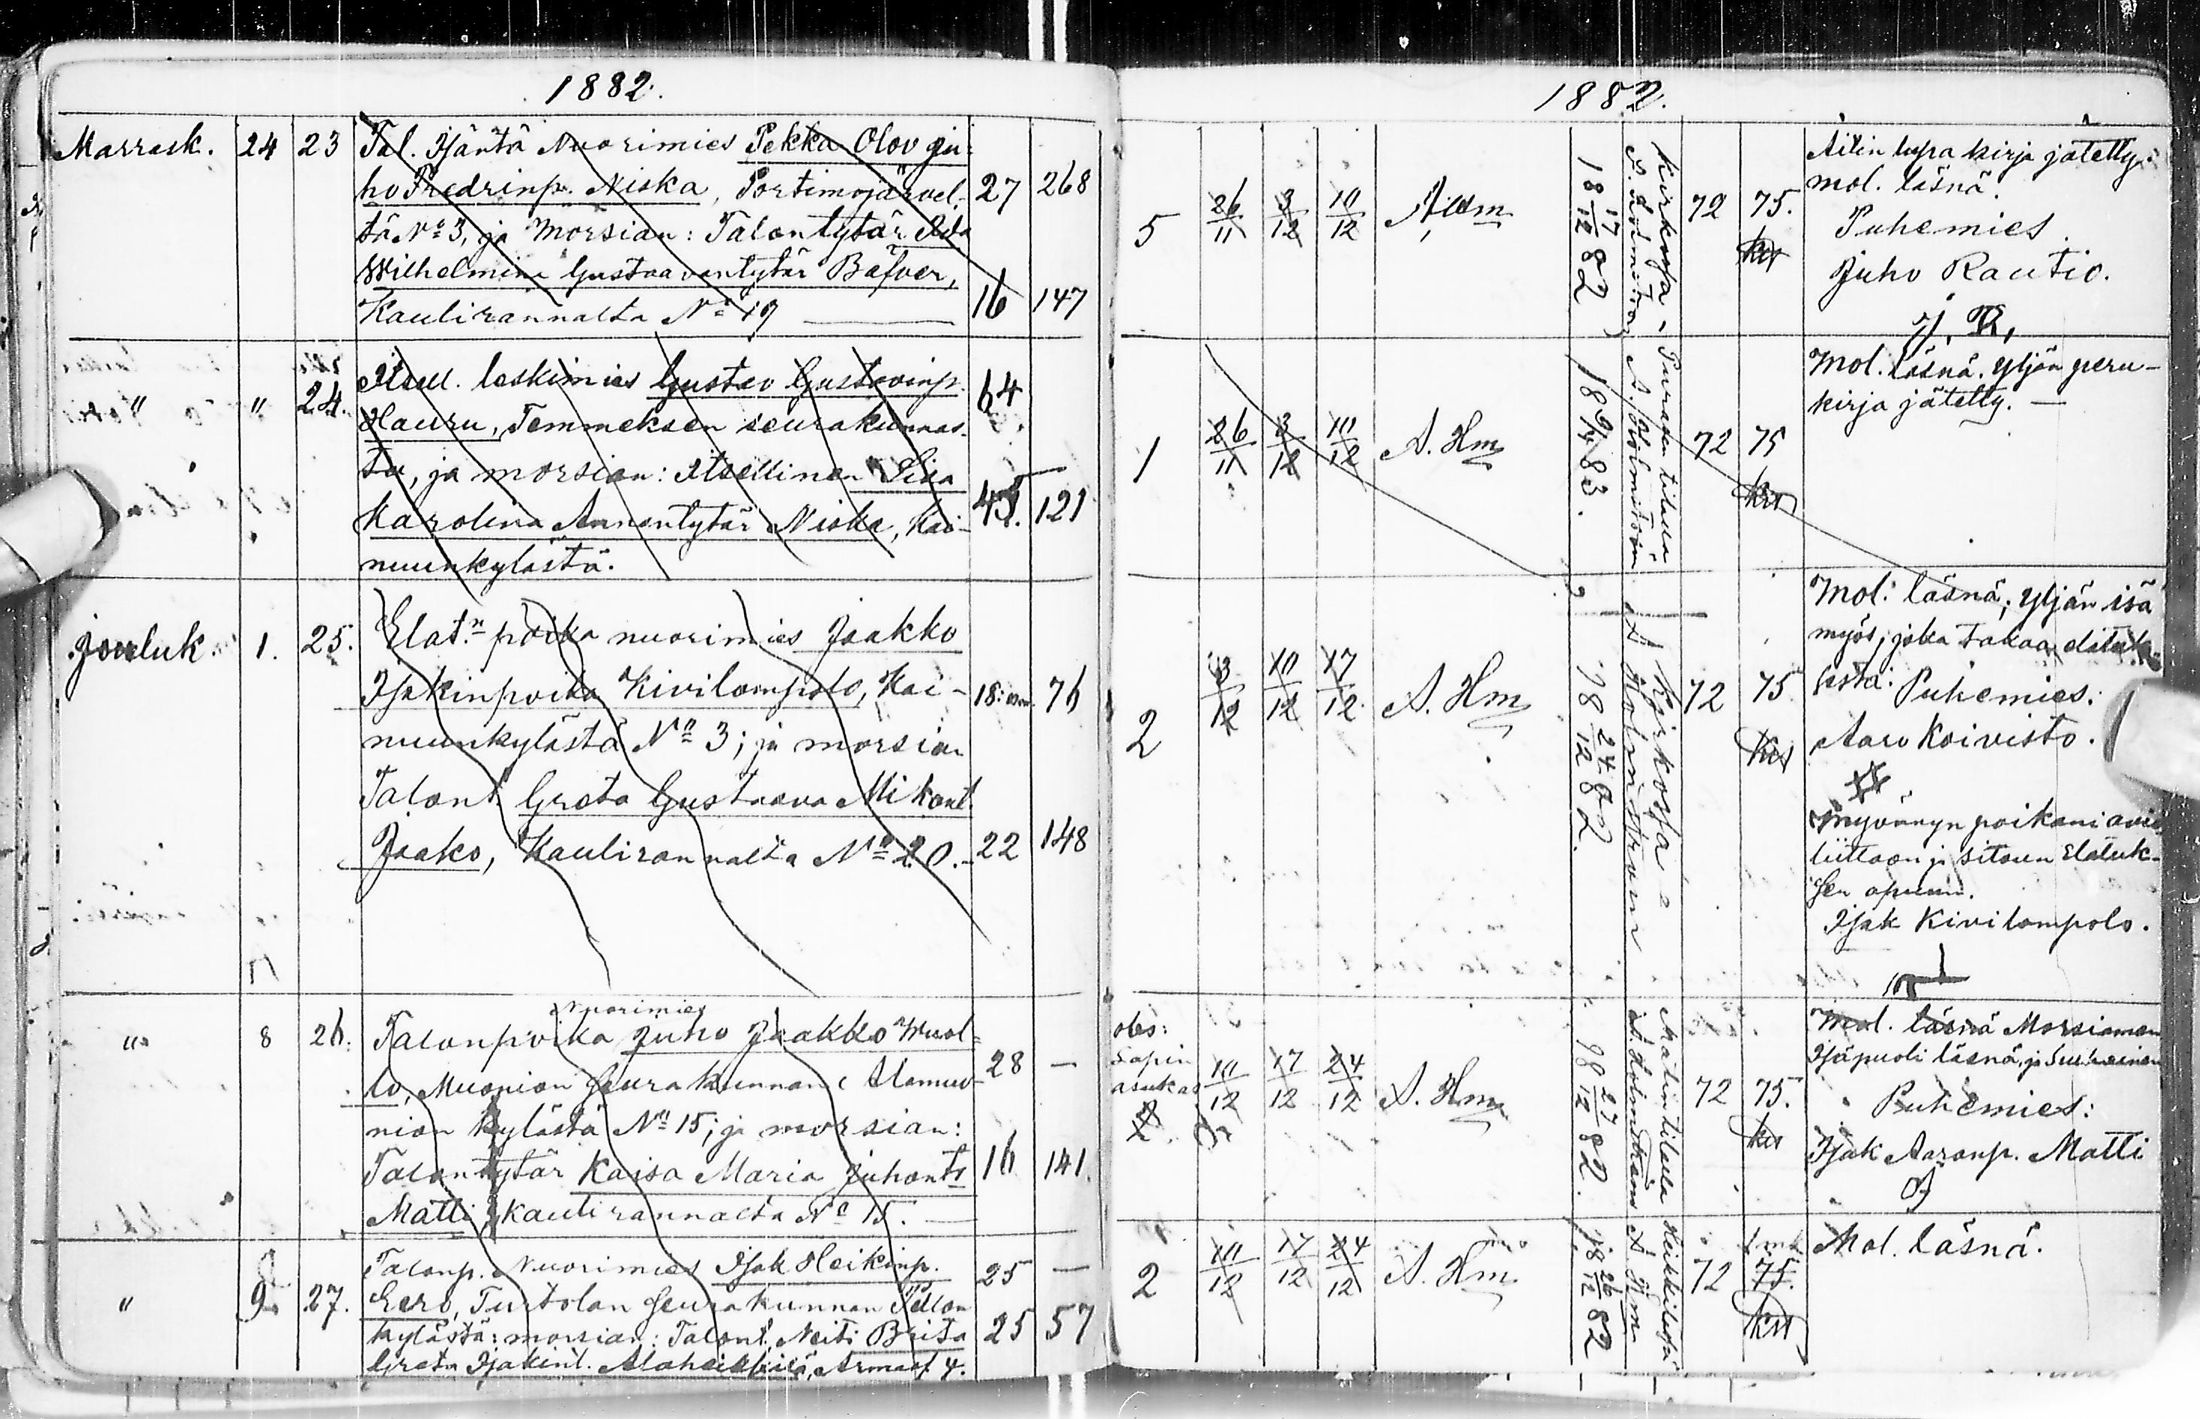 1882.
Marrask. 24 23 Tal. Isäntä Nuorimies Pekka Olov Ju-
ho Fredrinp. Niska, Portimojärvel- 27 268
tä No 3, ja Morsian: Talontytär Ida
Wilhelmina Gustaavantytär Bäfver,
Kaulirannalta No 19 16 147
" " 24. Itsell. leskimies Gustav Gustavinp. 64
Hauru, Temmeksen seurakunnas-
ta, ja morsian: itsellinen
Karolina Annantytär Niska, Kai- 121
nuunkylästä.
Jouluk. 1. 25. Elat.n poika nuorimies Jaakko
Isakinpoika Kivilompolo, Kai- 18: 76
nuunkylästä No 3; ja morsian
Talont. Greta Gustaava Mikont.
Jaako, Kaulirannalta No 20. 22 148
Nuorimies
" 8 26. Talonpoika Juho Jaakko Wuol-
lo, Muonion seurakunnan Alamuo- 28 —
nion kylästä No 15; ja morsian:
Talontytär Kaisa Maria Juhont. 16 141
Matti, Kaulirannalta No 15.
" 9 27. Talonp. Nuorimies Isak Heikinp. 25 —
Eero, Turtolan seurakunnan Pellon
kylästä: morsian: Talont. Neiti Brita 25 57
Greta Isakint. Alaheikkilä, Armasj. 4.
1882.
5 26/11 3/12 10/12 A. Hm 18 17/12 82 Kirkossa 72 75.
Äitin lupa kirja jätetty.
mol. läsnä.
Puhemies
Juho Rautio.
J. R.
1 26/11 3/12 10/12 A. Hm 18 83. tilalla A. Holmström 72 75
Mol. läsnä. Yljän peru-
kirja jätetty. —
2 3/12 10/12 17/12 A. Hm 18 24/12 82. Kirkossa A. Holmström 72 75
Mol: läsnä; Yljän isä
myös, joka takaa elatuk-
sesta: Puhemies:
Aaro Koivisto.
Myönnyn poikani avio
liittoon ja sitoun Elatuk-
sen apuun.
Isak Kivilompolo.
obs:
Lapin
asukas
2. 10/12 17/12 24/12 A. Hm 18 27/12 82. Matin tilalla A. Holmström 72 75.
Mol. läsnä Morsiamen
Isäpuoli läsnä, ja
Puhemies:
Isak Aaronp. Matti
2 10/12 17/12 24/12 A. Hm 18 26/12 82 Heikkilässä A. Hm 72 75.
Mol. läsnä.